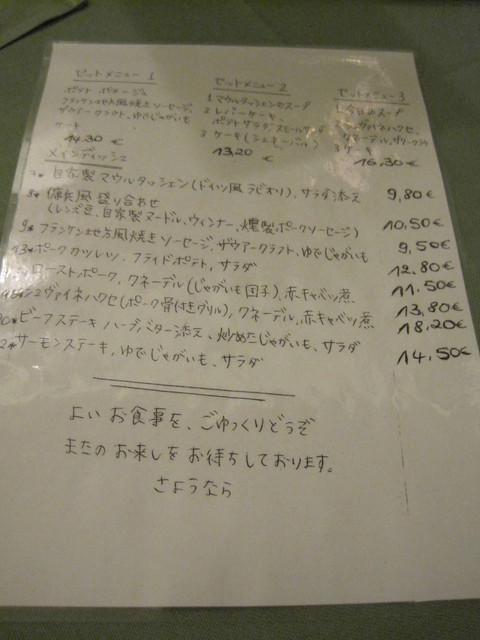 セットメニュー 1
ポテト ポタージュ
フランケン地方風焼きソーセージ、
ザウアークラフト、ゆでじゃがいも
ケーキ
14.30 €
セットメニュー 2
1 マウルタッシェンのスープ
2 レバーケーキ、
ポテトサラダ、
3 ケーキ
13,20 €
セットメニュー 3
1. 今日のスープ
クネーデル、
3 ケーキ
16,30 €
メインディッシュ
自家製 マウルタッシェン(ドイツ風 ラビオリ)、サラダ添え 9,80€
8* 盛り合わせ
(レンズ豆、自家製ヌードル、ウィンナー、燻製ポークソーセージ) 10,50€
9* フランケン地方風焼き ソーセージ、ザウアークラフト、ゆでじゃがいも 9,50€
13* ポーク カツレツ、フライドポテト、サラダ 12.80€
ローストポーク、クネーデル(じゃがいも団子)、赤キャベツ煮 11.50€
シュヴァイネハクセ(ポーク骨付きグリル)、クネーデル、赤キャベツ煮 13,80€
ビーフステーキ ハーブバター添え、炒めたじゃがいも、サラダ 18,20€
サーモンステーキ、ゆでじゃがいも、サラダ 14,50€
よい お食事を、ごゆっくりどうぞ
またの お来しを お待ちしております。
さようなら